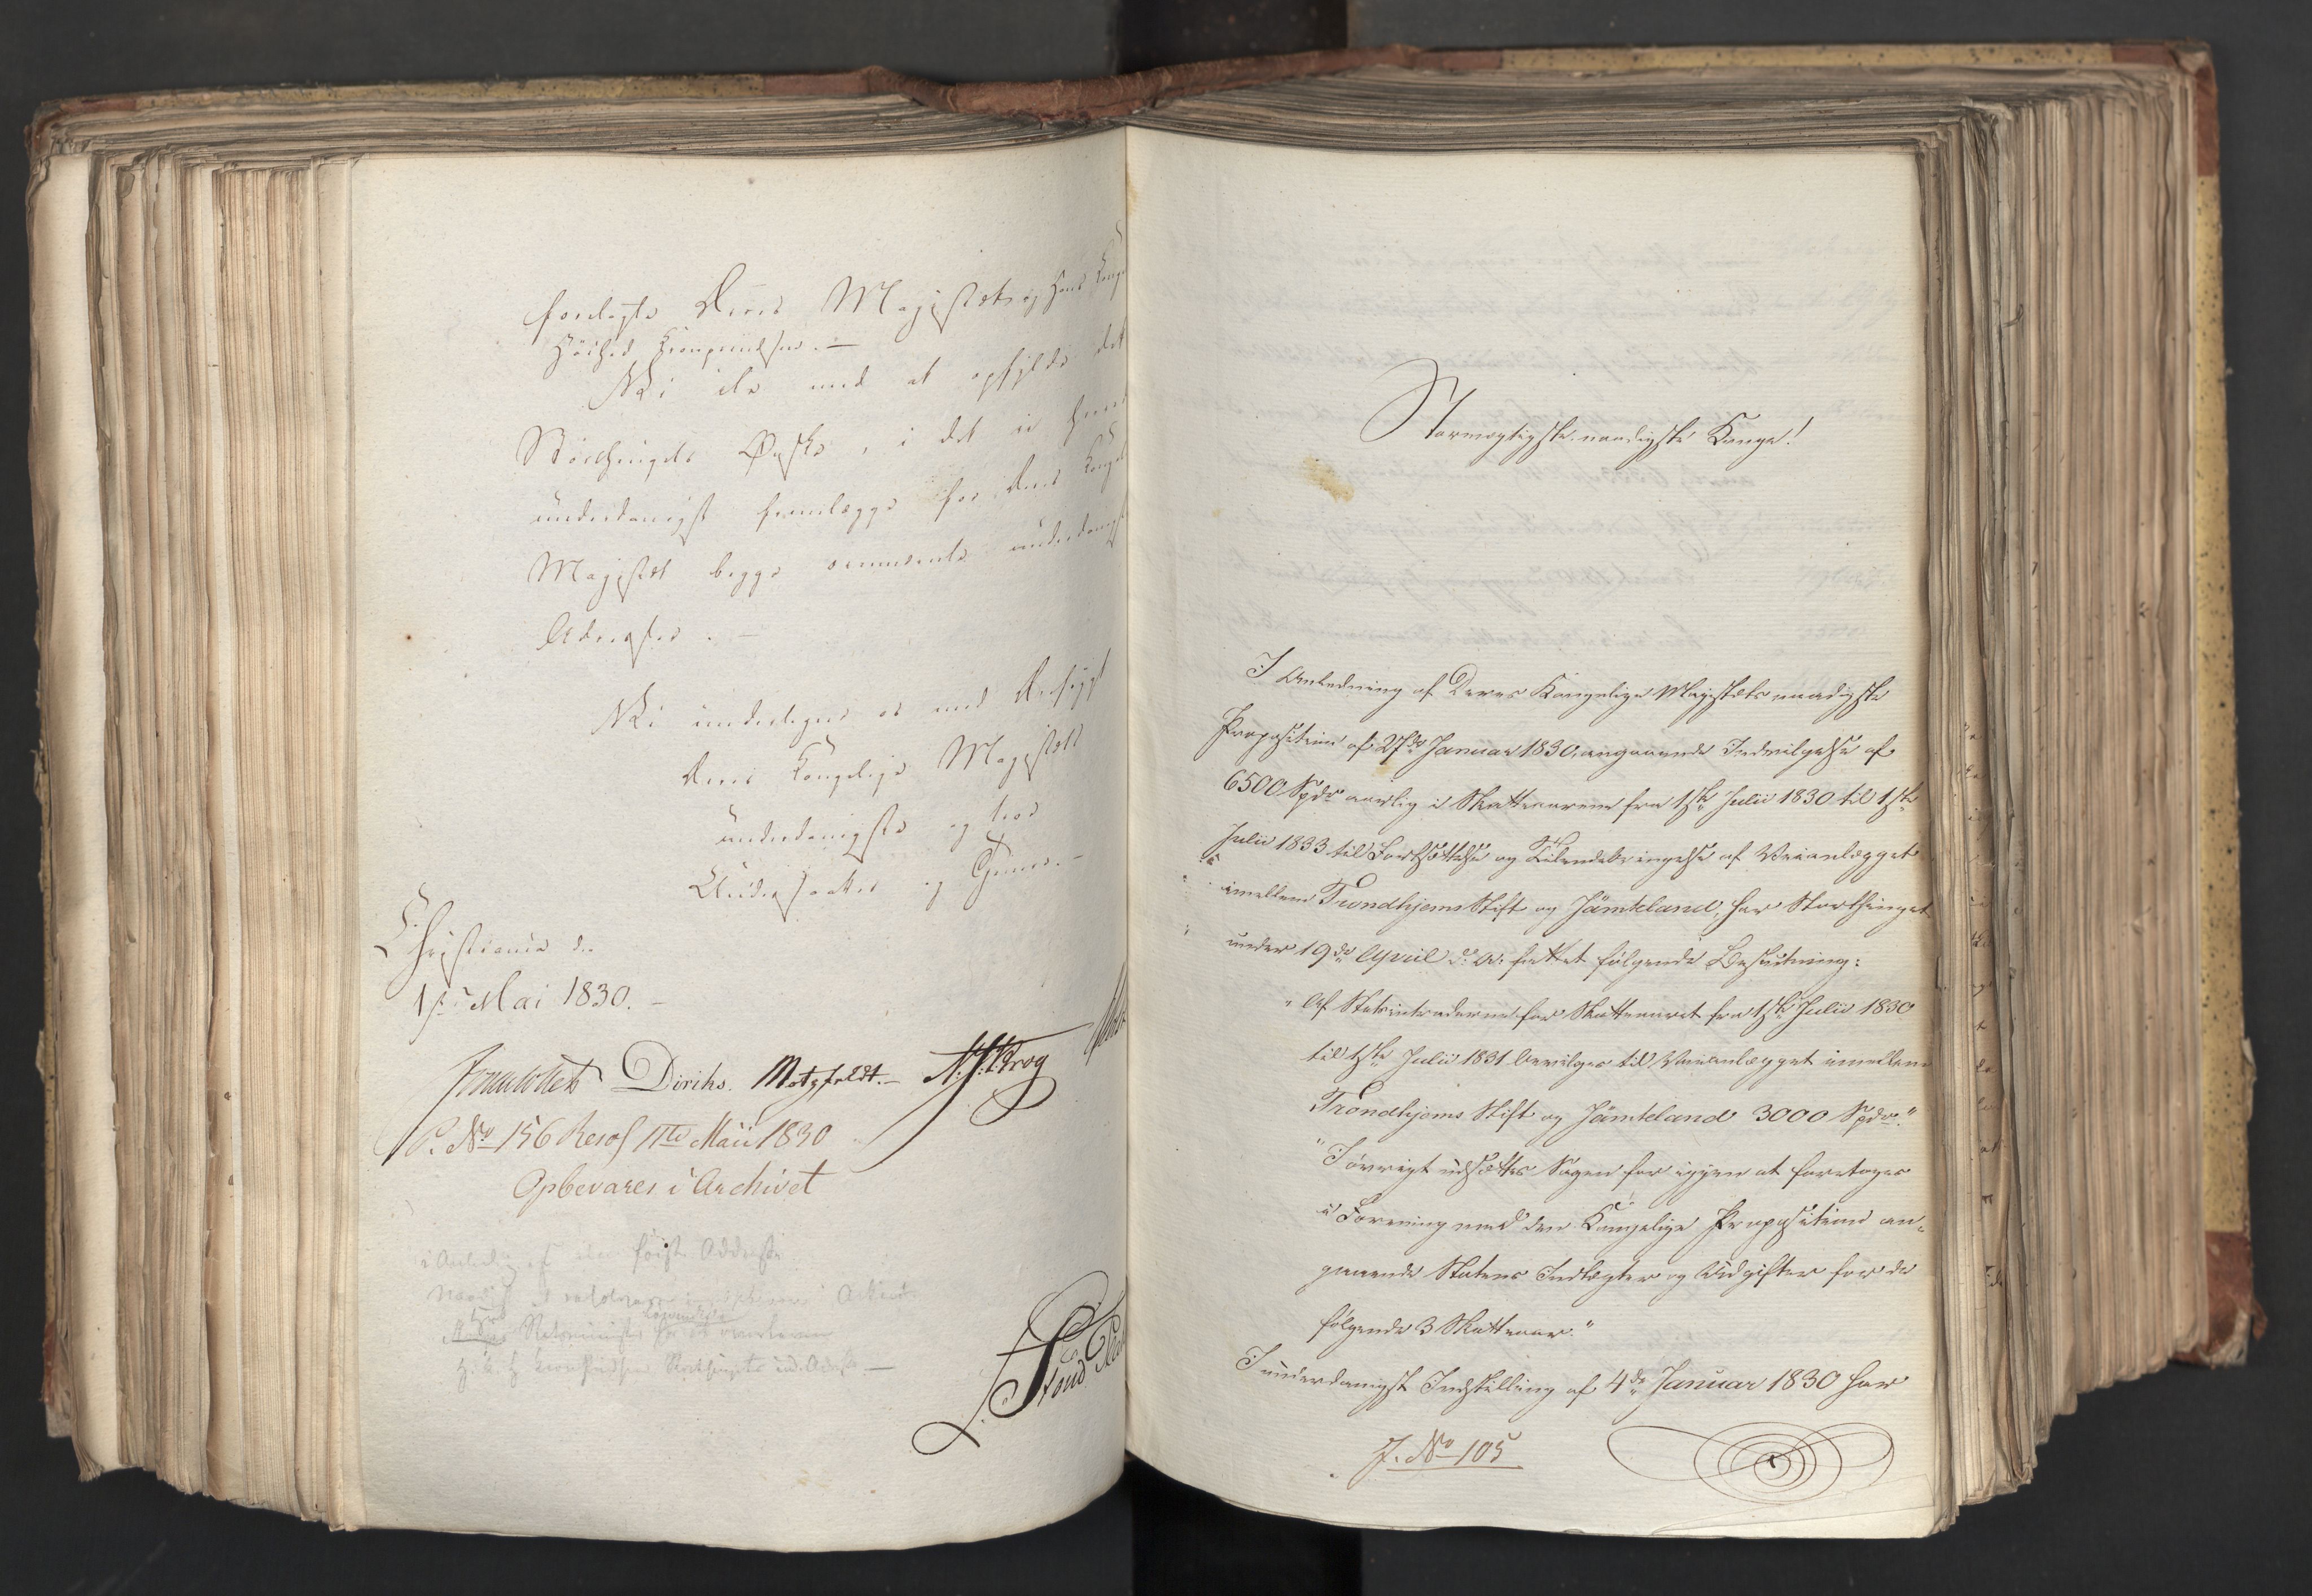 forelagte Deres Majestæt og Hans Kongl
Høihed Kronprindsen. —
Vi ile med at opfylde det
Storthingets Ønske, i det vi herved
underdanigst fremlægge for Deres Kongel
Majestæt begge ommeldte underdanigst
Adresser. —
Vi undertegne os med Dybeste
Deres Kongelige Majestæts
underdanigste og troe
Undersaatter og Tjenere. —
Christiania den
1ste Mai 1830. —
Diriks. Motzfeldt. — Krog
P. No 156 Resol 11te Maii 1830
Opbevares i Archivet
første Addresse
H. K. H. Kronprindsen Storthingets und. Adresse —
Stormægtigste, naadigste Konge!
I Anledning af Deres Kongelige Majestæts naadigste
Proposition af 27de Januar 1830, angaaende Indvilgelse af
6500 Spdr aarlig i Skatteaarene fra 1ste Julii 1830 til 1ste
Julii 1833 til Fortsættelse og Tilendebringelse af Veianlægget
imellem Trondhjems Stift og Jämteland, har Storthinget
under 19de April d: A: fattet følgende Beslutning:
"Af Statsintraderne for Skatteaaret fra 1ste Julii 1830
til 1ste Julii 1831 bevilges til Veianlægget imellem
Trondhjems Stift og Jämteland 3000 Spdr."
"Iøvrigt udsættes Sagen for igjen at foretages
i Forening med den Kongelige Proposition an-
gaaende Statens Indtægter og Udgifter for de
følgende 3 Skatteaar."
I underdanigst Indstilling af 4de Januar 1830 har
J. No 105